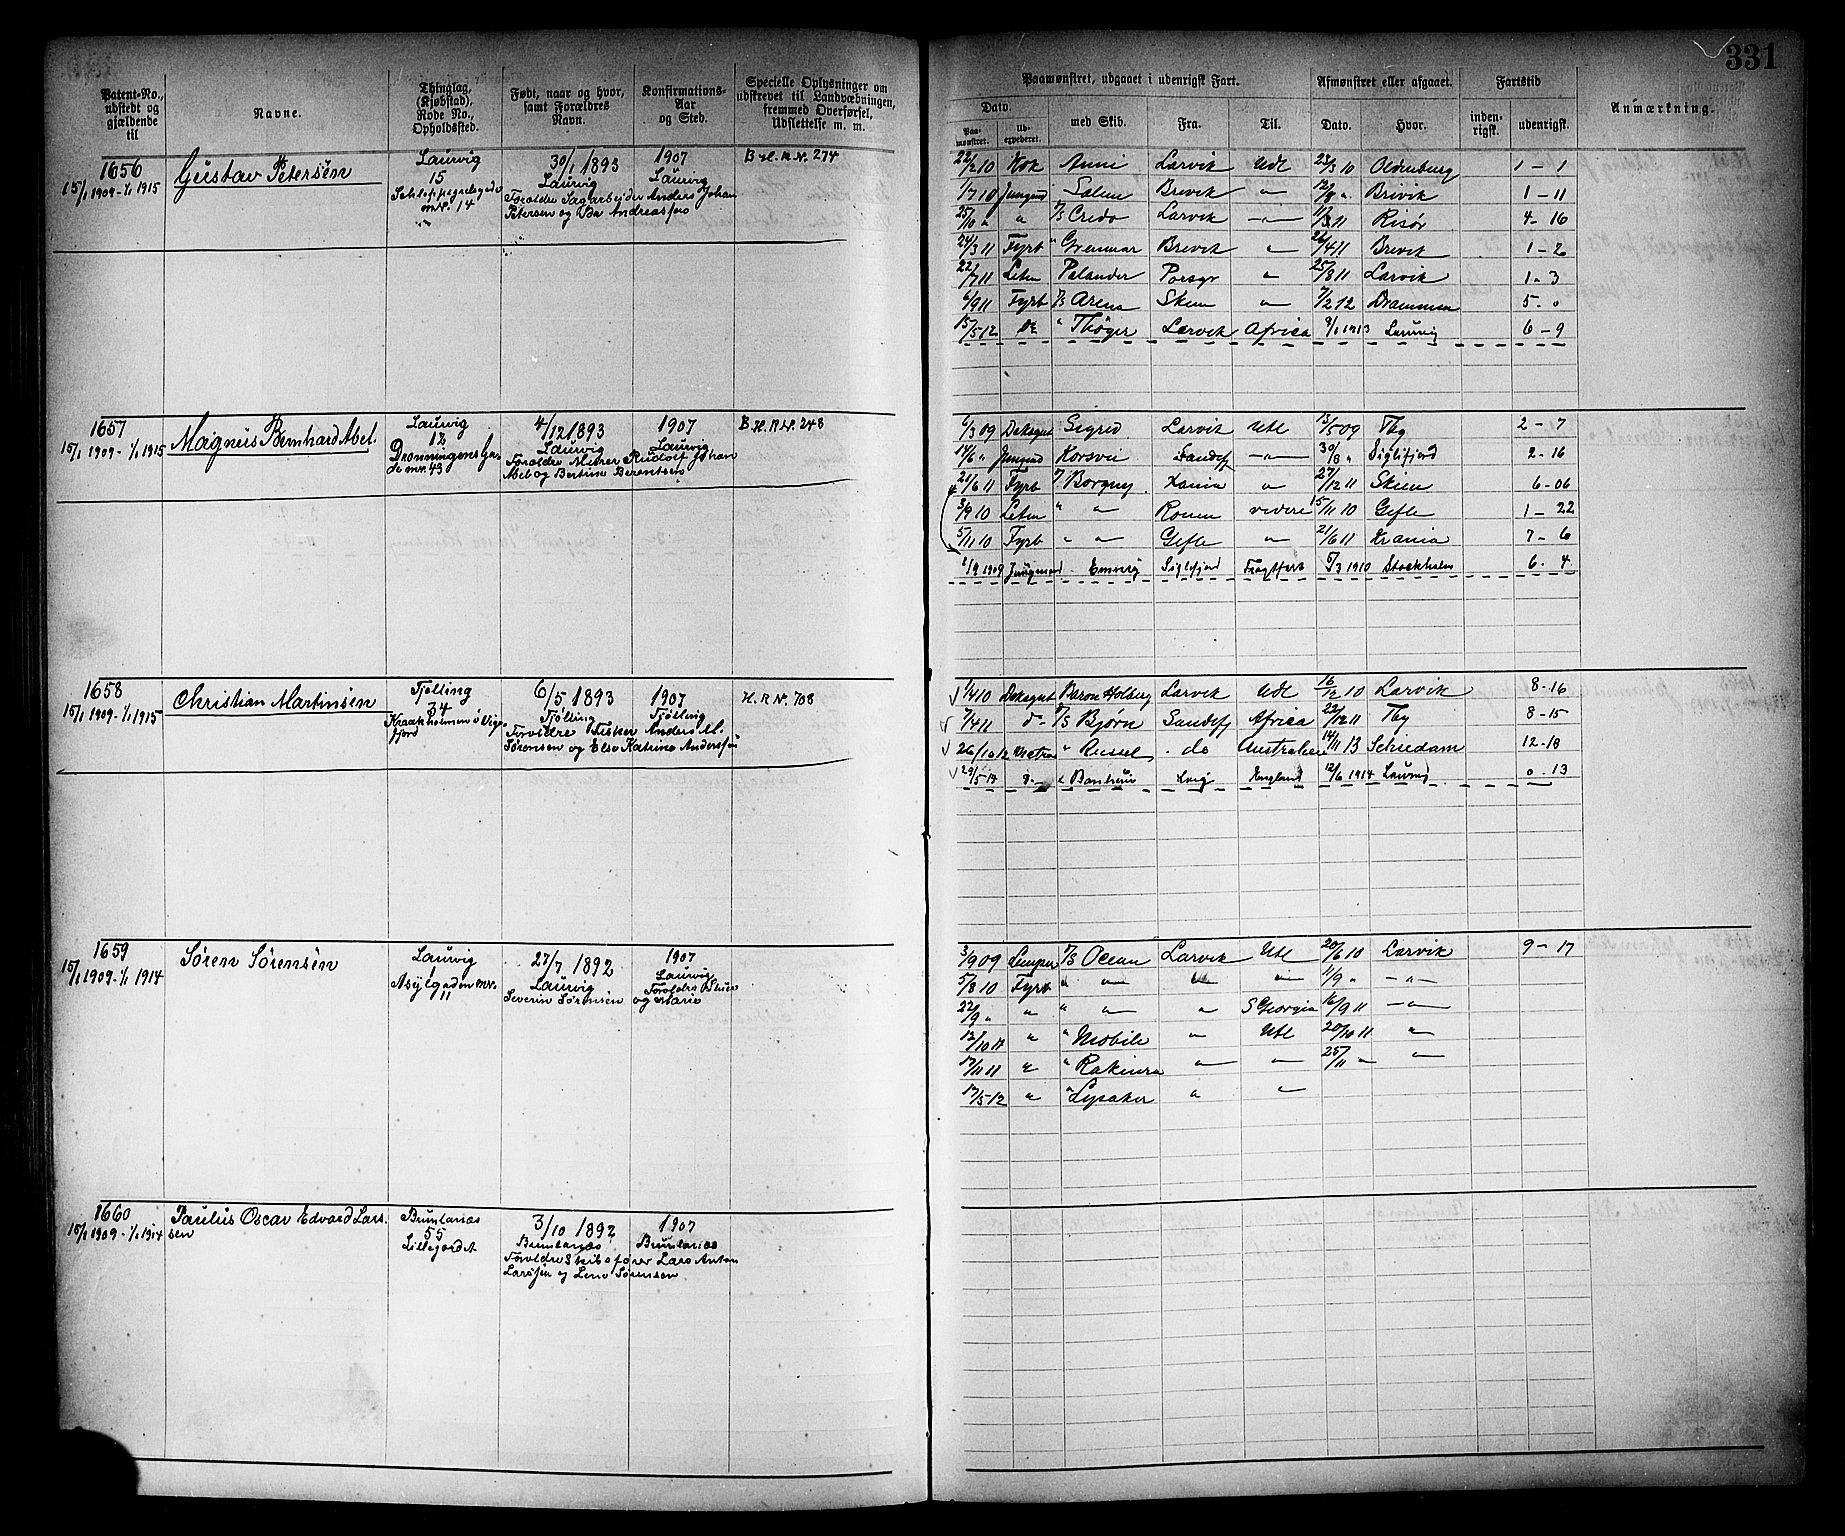 331
Patent-No., udstedt og gjældende til
Navne.
Thinglag, (Kjøbstad), Rode No., Opholdssted.
Født, naar og hvor, samt Forældres Navn.
Konfirmations-Aar og Sted.
Specielle Oplysninger om udskrevet til Landværnet, fremmed Overførsel, Udslettelse m. m.
Paamønstret, udgaaet i udenrigsk Fart.
Afmønstret eller afgaaet.
Fartstid
Anmærkning.
Dato.
Paa-mønstret. Ud-expederet. med Skib. Fra. Til. Dato. Hvor. inden-rigsk. udenrigsk.
1656
15/1 1909-1/1 1915
Gustav Petersen
Laurvig
15
Schleppegrelsgade
nr. 14
30/1 1893
Laurvig
Forældre Sagarbejder Anders Johan
Petersen og Andreassen
1907
Laurvig
B H. R N. 274
22/2 10 Kok Anni Larvik Udl 23/3 10 Oldenburg 1 - 1
1/7 10 Jungmd Salem Brevik " 12/8 " Brevik 1 - 11
25/10 " " D/S Credo Larvik " 11/3 11 Risør 4 - 16
24/3 11 Fyrb " Grenmar Brevik " 26/4 11 Brevik 1 - 2
22/7 11 Letm Polander Porsgr " 25/8 11 Larvik 1 - 3
6/9 11 Fyrb D/S Arena Skien " 7/2 12 Drammen 5 - 0
15/5 12 Do " Thøger Larvik Africa 9/1 1913 Laurvig 6 - 9
1657
15/1 1909-1/1 1915
Magnus Bernhard Abel.
Laurvig
12
Dronningens Ga-
de nr. 43
4/12 1893
Laurvig
Forældre Murer Rudolf Johan
Abel og Bertine Berentsen
1907
Laurvig
B. H. R N. 248
6/3 09 Deksgut Sigrid Larvik Udl 13/5 09 Tbg 2 - 7
14/6 " Jungmd Korsvei Sandefj " 30/8 " Siglefjord 2 - 16
21/6 11 Fyrb D/ Borgny Xania " 27/12 11 Skien 6 - 06
3/9 10 Letm " " Rouen videre 15/11 10 Gefle 1 - 22
5/11 10 Fyrb " " Gefle " 21/6 11 Xrania 7 - 6
1/9 1909 Jungmand Siglefjord Fragtfart 5/3 1910 Stockholm 6 - 4
1658
15/1 1909-1/1 1915
Christian Martinsen
Tjølling
34
Kraakholmen i Vigs-
fjord
6/5 1893
Tjølling
Forældre Fisker Anders M.
Sørensen og Else Katrine Andersen
1907
Tjølling
H. R N. 708
1/4 10 Deksgut Baron Holberg Larvik Udl 16/12 10 Larvik 8 - 16
7/4 11 d- D/S Bjørn Sandefj Africa 22/12 11 Tbg 8 - 15
26/10 12 Matros " Russel do Australien 14/11 13 Schiedam 12 - 18
29/5 14 d- " Lvig England 12/6 1914 Laurvig 0 - 13
1659
15/1 1909-1/1 1914
Søren Sørensen
Laurvig
Asylgaden nr.
11
27/7 1892
Laurvig
Severin Sørensen
1907
Laurvig
og Marie
3/9 09 Lemper D/S Ocean Larvik Utl 20/6 10 Larvik 9 - 17
5/8 10 Fyrb " " " " 11/9 " "
22/9 " " " " " S Georgia 16/9 11 "
12/10 11 " " Mobile " Utl 20/10 11 "
17/11 11 " " Rakiura " " 25/11 " "
17/5 12 " " Lysaker " "
1660
15/1 1909-1/1 1914
Paulus Oscar Edvard Lars-
sen
Brunlanæs
55
Lillejordet
3/10 1892
Brunlanæs
Forældre Skibsfører Lars Anton
Larssen og Lene Sørensen
1907
Brunlanæs